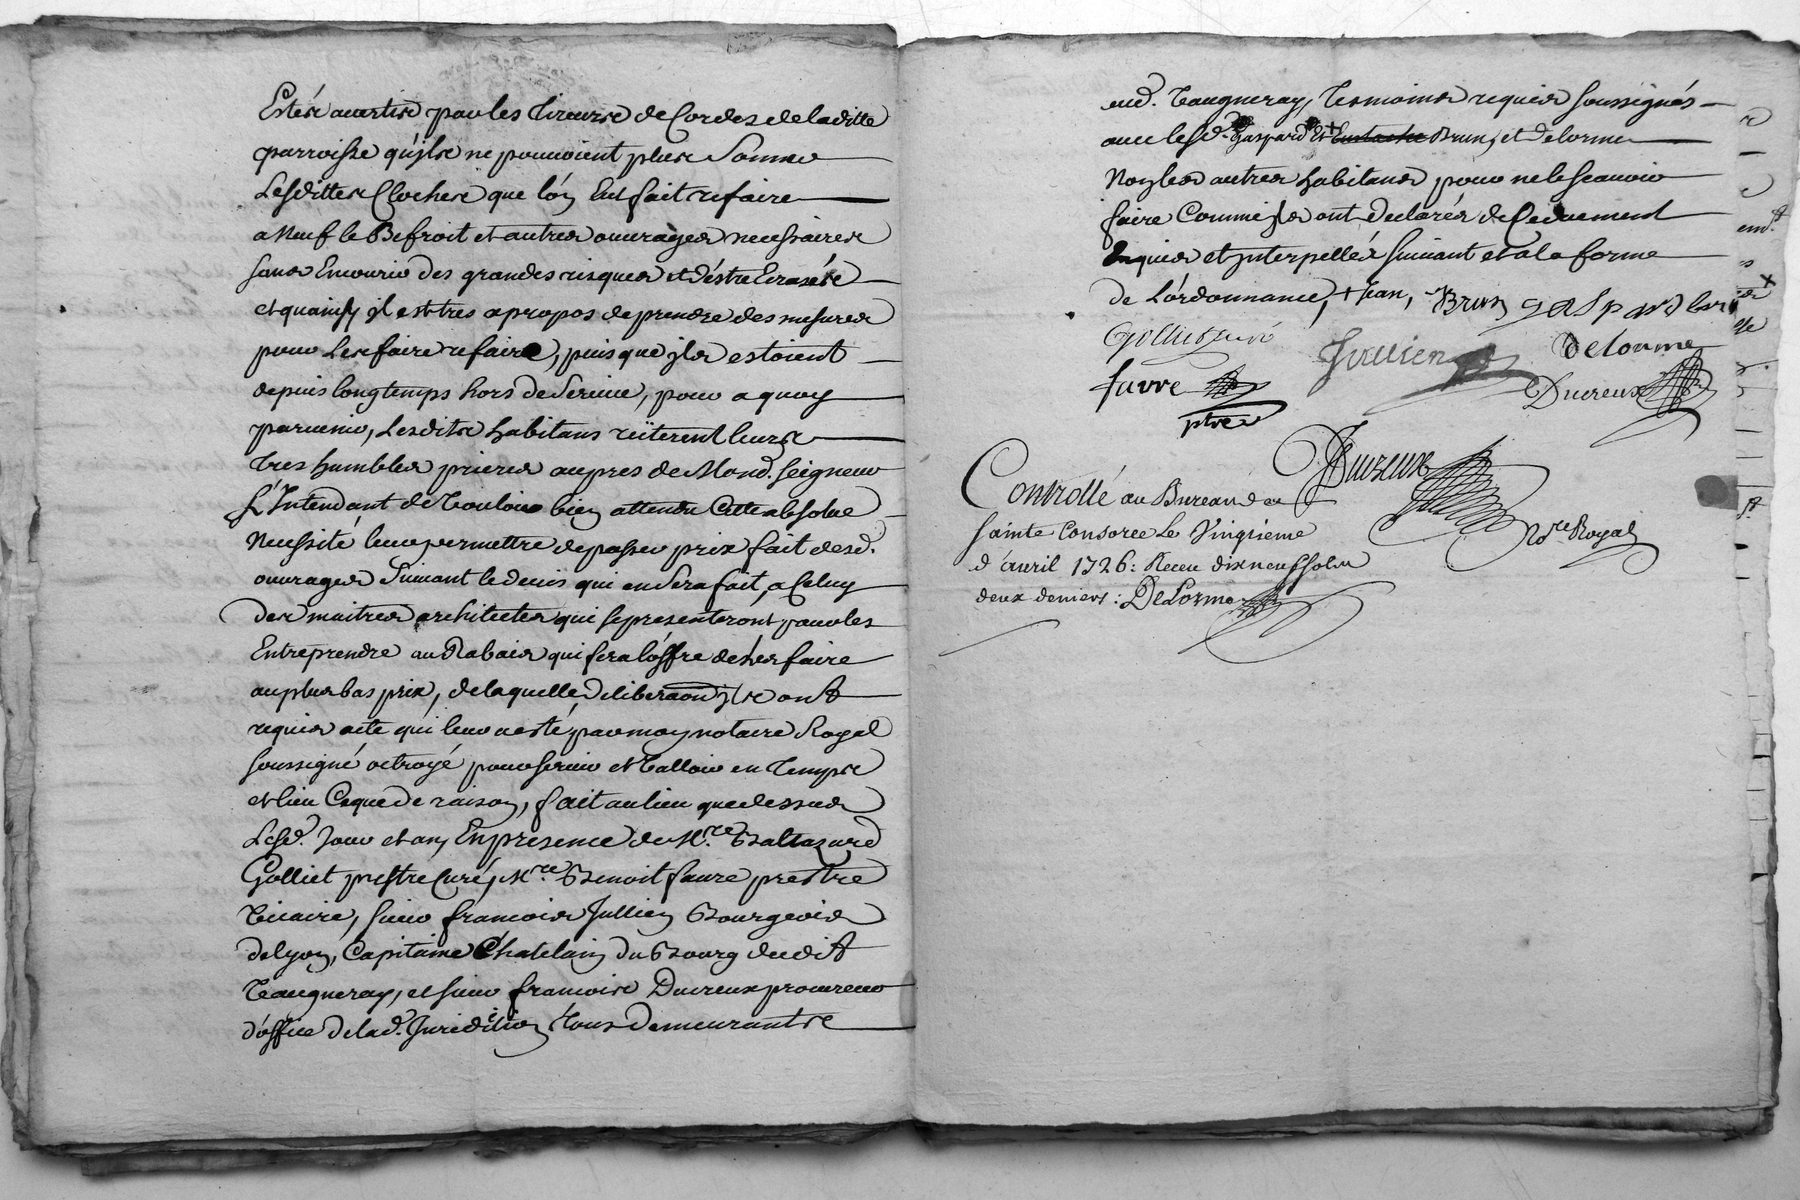 Estés avertis par les tireurs de Cordes de laditte
parroisse qu'jls ne pouvoient plus Sonner
Lesdittes Cloches que l'on Eut fait refaire
a Neuf le Béfroit et autres ouvrages necessaires
sans Encourir des grandes risques et d'éstre Ecrasés
et quainsy jl est tres apropos de prendre des mesures
pour Les faire refaire, puis que jls estoient
depuis longtemps hors de Service, pour a quoy
parvenir, Lesdits habitans reïterent leurs
tres humbles prieres aupres de Mond. Seigneur
L'Intendant de vouloir bien attendu Cette absolue
Necessité leur permettre de passer prix fait desd.
ouvrages Suivant le devis qui en Sera fait, a Celuy
des maitres architectes qui se presenteront pour les
Entreprendre au Rabais qui fera l'offre de les faire
au plus bas prix, de laquelle Deliberaon jls ont
requis acte qui leur a esté par moy notaire Royal
soussigné octroyé pour servir et valloir en temps
et lieu Ce que de raison, fait au lieu que dessus
Lesd. Jour et an, En presence de Mre Baltazard
Golliet prestre Curé, Mre Benoit faure prestre
vicaire, sieur francois Jullien Bourgeois
de lyon, Capitaine Chatelain du Bourg dudit
vaugneray, et sieur francois Ducreux procureur
d'office de lad. Juridiction tous demeurants
aud. vaugneray, tesmoins requis soussignés
avec lesd. Gaspard et + Brun, et Delorme
Non les autres habitans pour ne le scavoir
faire Comme jls ont declarés de Ce duement
Enquis et jnterpellés suivant et a la forme
de L'ordonnance, + Jean, Brun gaspard brun
Golliet Curé Jullien Delorme
favre ptre Ducreux
Ducreux
Nore Royal
Controllé au Bureau de
sainte Consorce Le vingtieme
d'avril 1726: Receu dixneuf sols
deux deniers: DeLorme